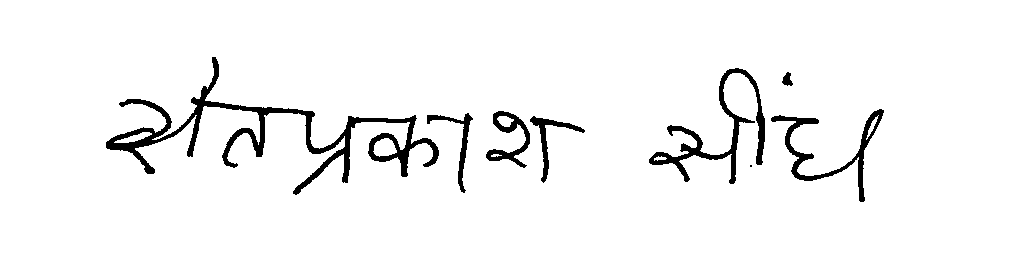 सेतप्रकाश सींघ